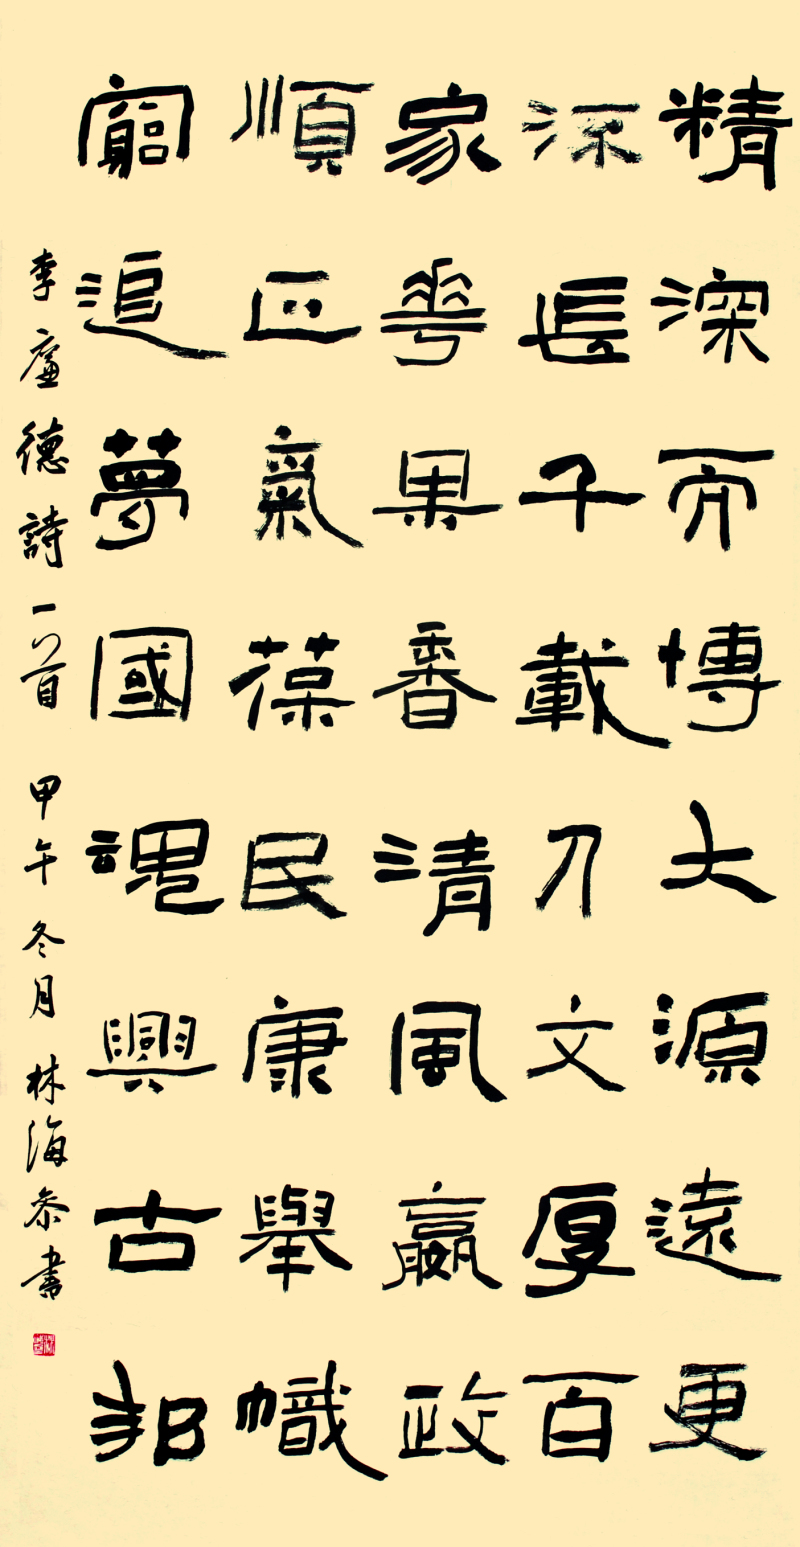 精深而博大源遠更
流長千載人文厚百
家華果香清風贏政
順正氣葆民康舉幟
窮追夢國魂興古邦
李廉德詩一首 甲午冬月 林海書